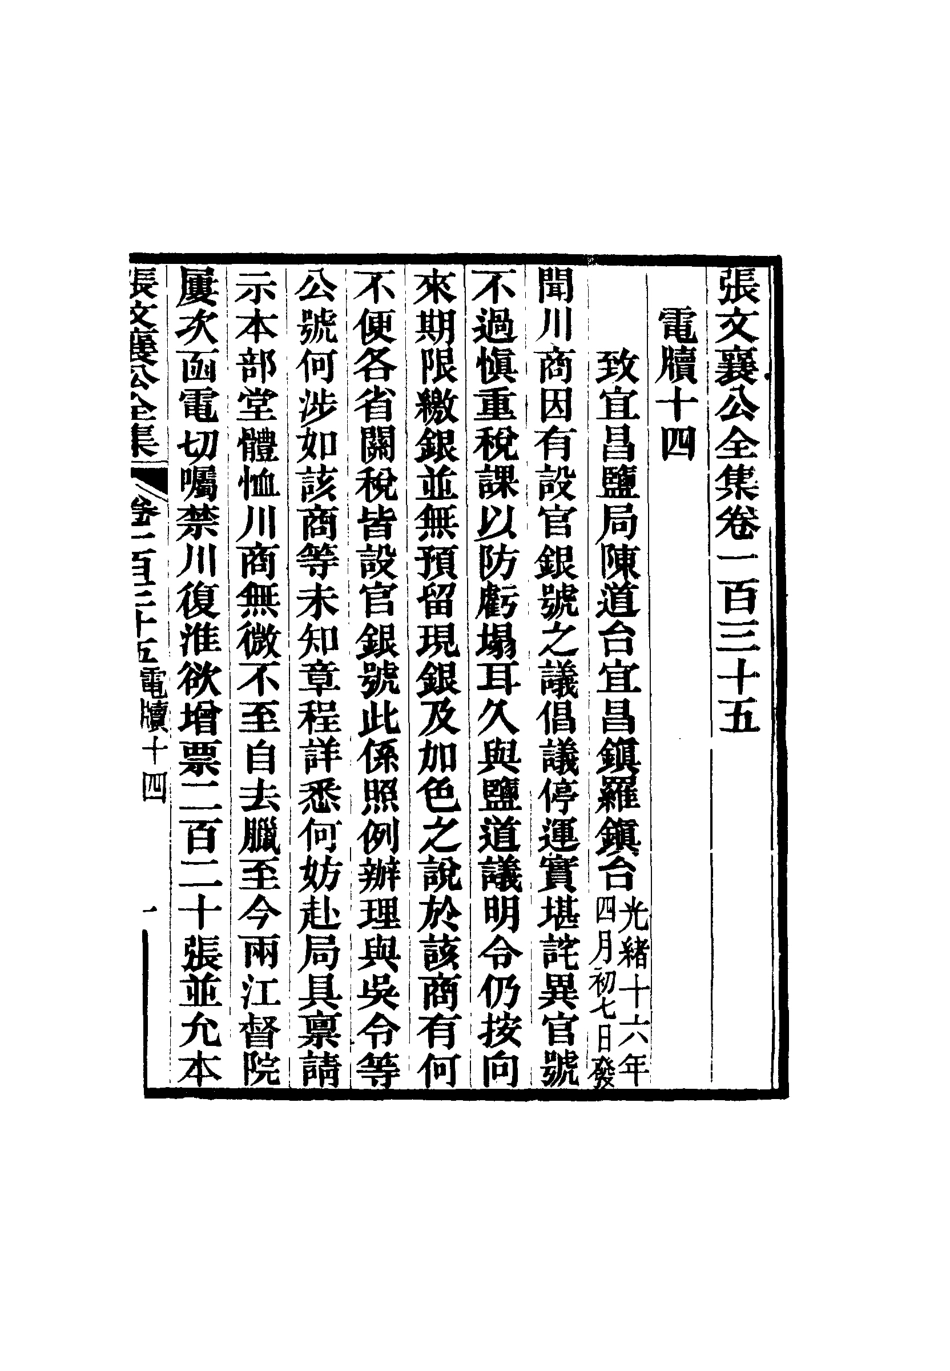 張文襄公全集卷一百三十五
電牘十四
致宜昌鹽局陳道台宜昌鎮羅鎮台光緒十六年四月初七日發
聞川商因有設官銀號之議倡議停運實堪詫異官號
不過慎重稅課以防虧塌耳久與鹽道議明令仍按向
來期限繳銀並無預留現銀及加色之說於該商有何
不便各省關稅皆設官銀號此係照例辦理與吳令等
公號何涉如該商等未知章程詳悉何妨赴局具稟請
示本部堂體恤川商無微不至自去臘至今兩江督院
屢次函電切囑禁川復淮欲增票二百二十張並允本
張文襄公全集 卷一百三十五 電牘十四 一